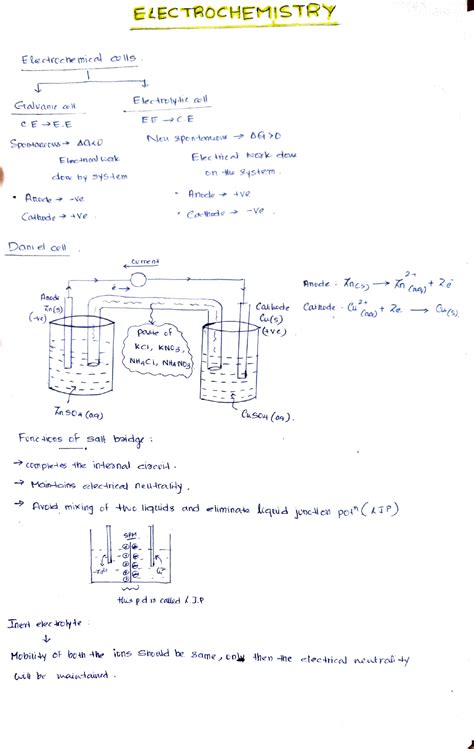 ELECTROCHEMISTRY
Electrochemical cells.
Galvanic cell
Electrolytic cell
C.E → E.E
EE → C.E
Spontaneous → ΔG<0
Non spontaneous → ΔG>0
Electrical work
done by system
Electrical work done
on the system.
• Anode → -ve
Cathode → +ve
• Anode → +ve
• Cathode → -ve
Daniel cell.
current
e-
Anode
Zn(s)
(-ve)
Cathode
Cu(s)
(+ve)
paste of
KCl, KNO3,
NH4Cl, NH4NO3
ZnSO4 (aq)
CuSO4 (aq).
Anode: Zn(s) → Zn2+(aq) + 2e-
Cathode - Cu2+(aq) + 2e → Cu(s)
Functions of salt bridge:
→ completes the internal circuit.
→ Maintains electrical neutrality.
→ Avoid mixing of two liquids and eliminate liquid junction potn (LJP)
SPM
this p.d is called L.J.P
Inert electrolyte:
↓
Mobility of both the ions should be same, only then the electrical neutrality
will be maintained.